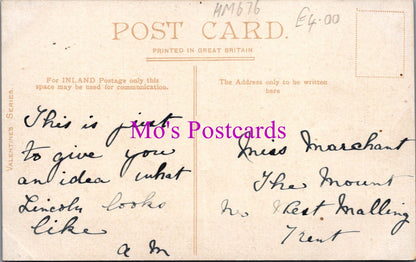 HM676
£4.00
POST CARD.
PRINTED IN GREAT BRITAIN
For INLAND Postage only this
space may be used for communication.
The Address only to be written
here
VALENTINES SERIES.
This is just
to give you
an idea what
Lincoln looks
like
a m
Mo's Postcards
Miss Marchant
The Mount
West Malling